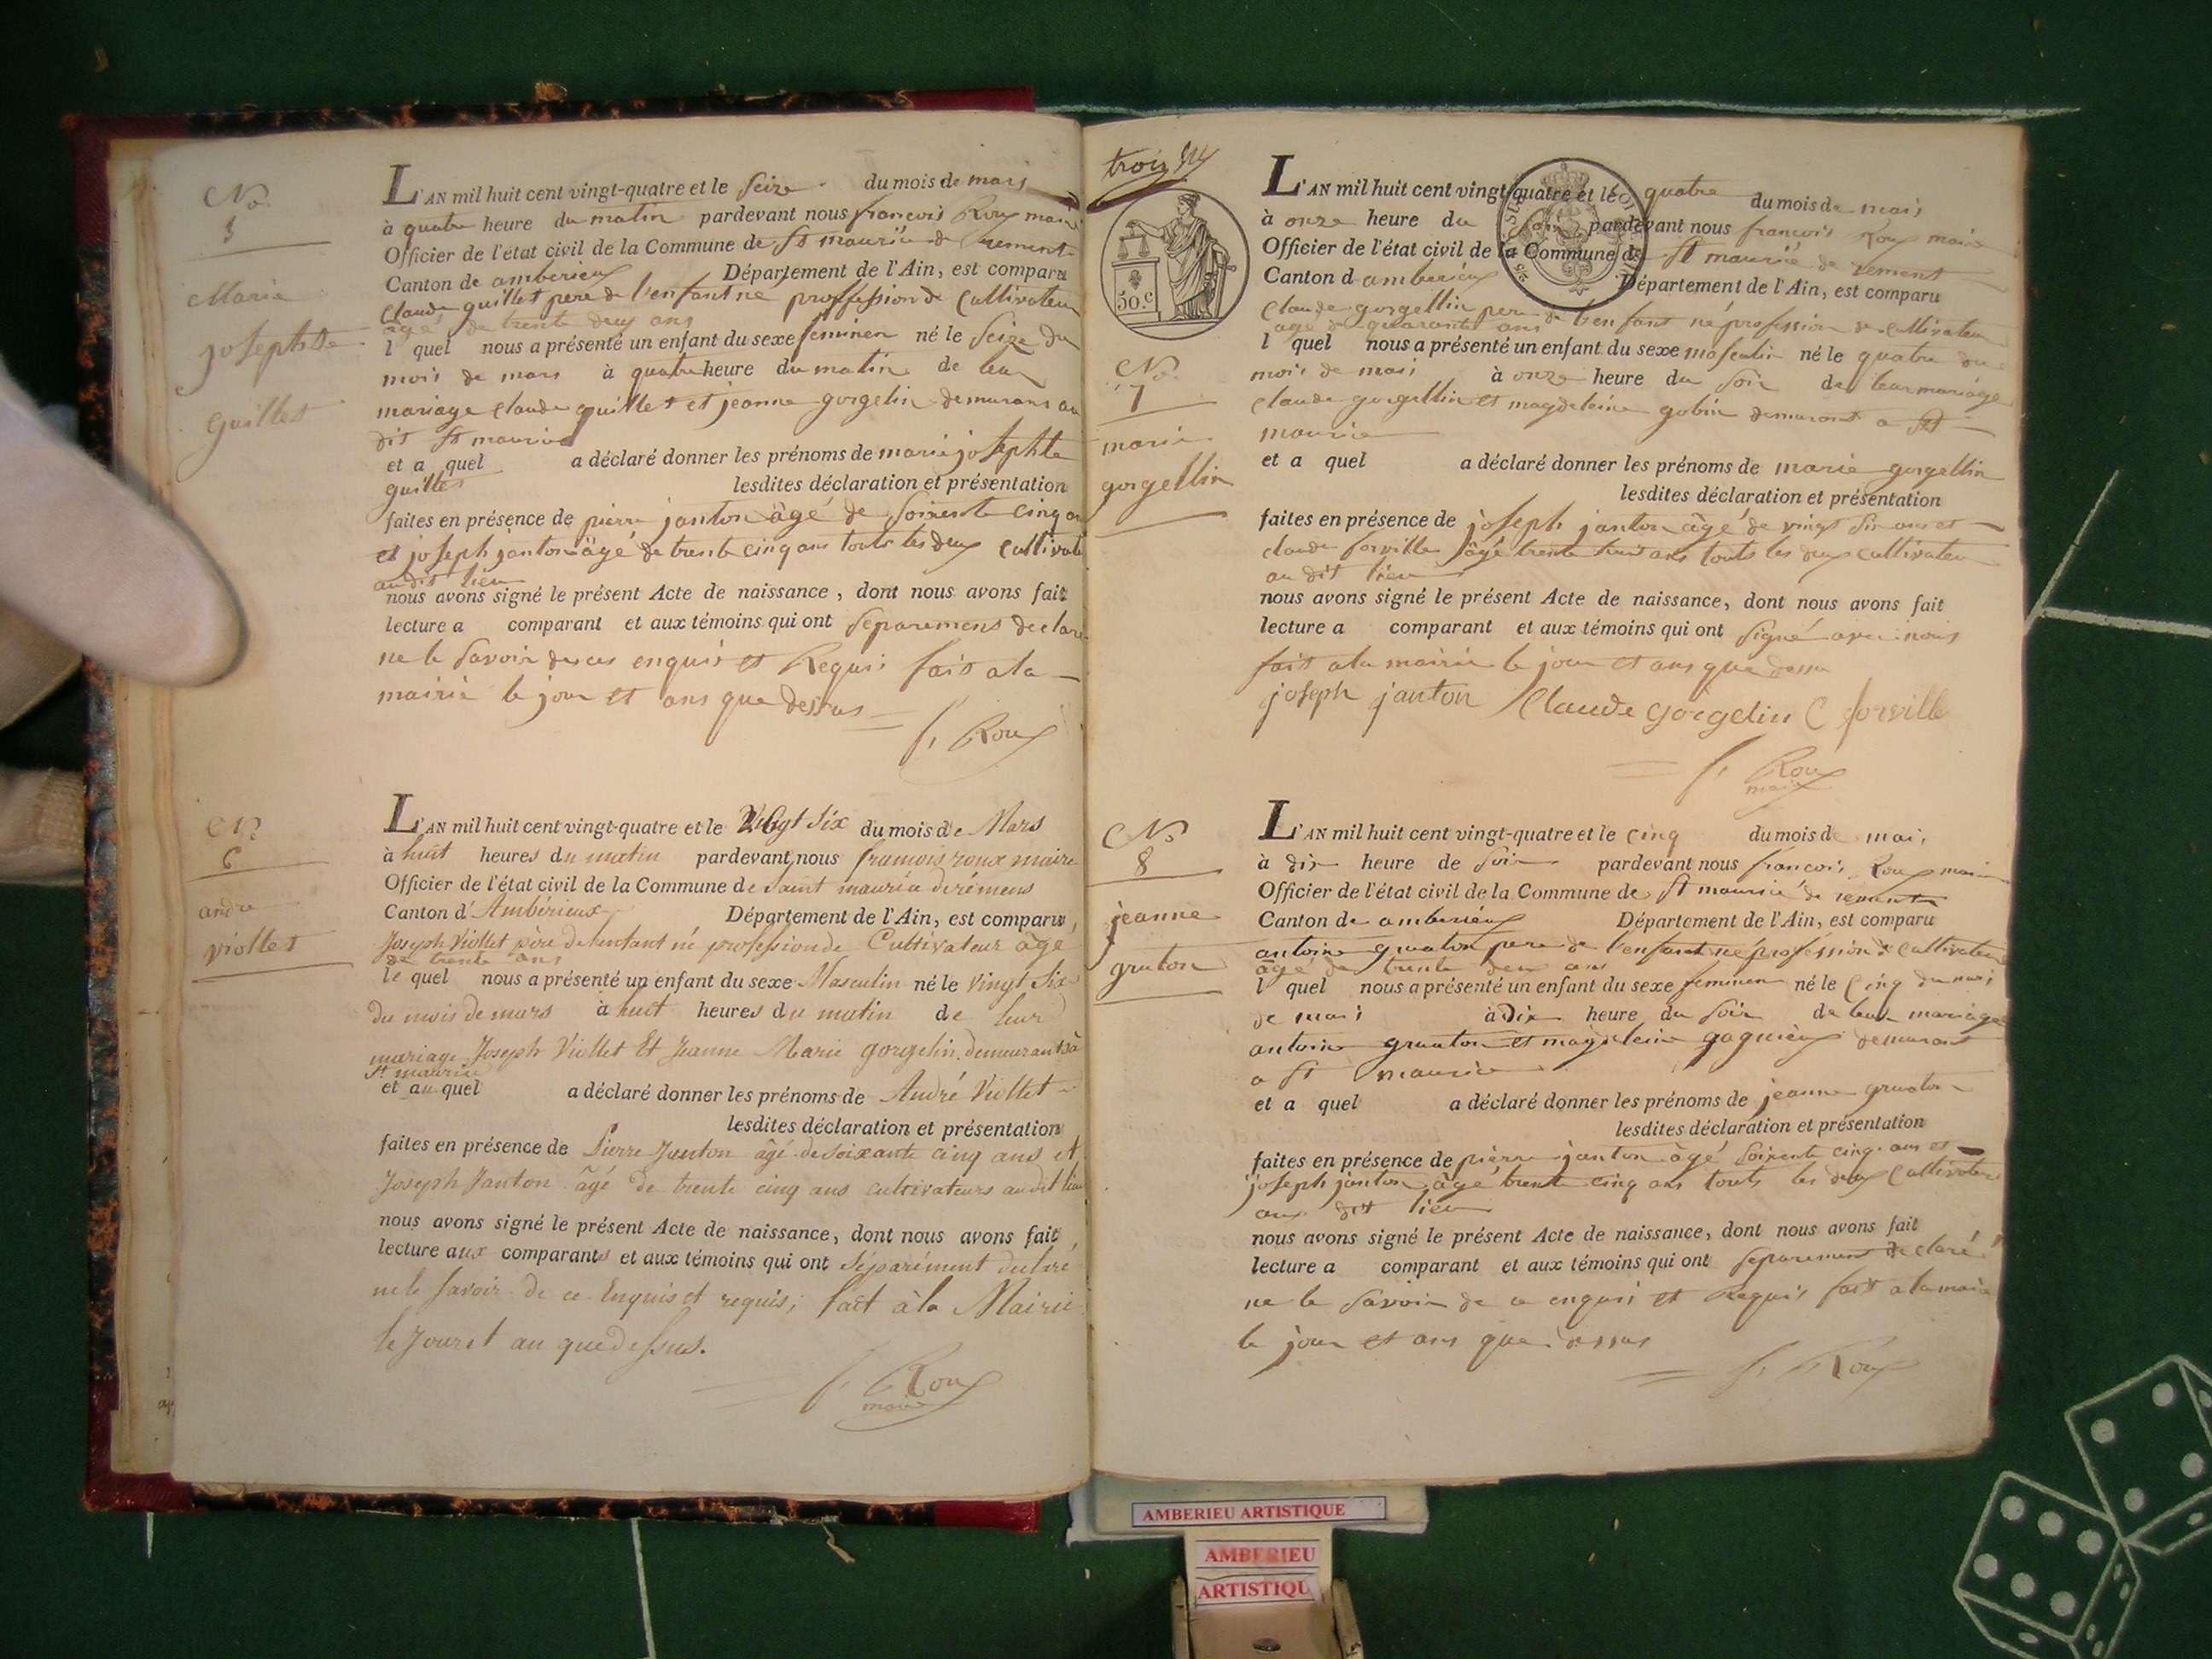 No.
5
Marie
josephte
guillet
L'AN mil huit cent vingt-quatre et le seize du mois de mars
à quatre heure du matin pardevant nous francois Roux maire
Officier de l'état civil de la Commune de st maurice de rement
Canton de amberieux Département de l'Ain, est comparu
claude guillet pere de l'enfant né proffession de cultivateur
âgé de trente deux ans
l quel nous a présenté un enfant du sexe feminen né le seize du
mois de mars à quatre heure du matin de leur
mariage claude guillet et jeanne gorgelin demurans au
dit st maurice
et a quel a déclaré donner les prénoms de marie josephte
guillet lesdites déclaration et présentation
faites en présence de pierre janton âgé de soixente cinq ans
et joseph janton âgé de trente cinq ans touts les deux cultivate
au dit lieu
nous avons signé le présent Acte de naissance, dont nous avons fait
lecture a comparant et aux témoins qui ont séparemens declaré
ne le savoir de ces enquis et Requis fait a la
mairie le jour et ans que dessus
f. Roux
No
6
andre
viollet
L'AN mil huit cent vingt-quatre et le Vingt Six du mois de Mars
à huit heures du matin pardevant nous francois roux maire
Officier de l'état civil de la Commune de Saint maurice de rémens
Canton d'Ambérieux Département de l'Ain, est comparu,
Joseph Viollet père de lenfant né profession de Cultivateur âgé
de trente ans
le quel nous a présenté un enfant du sexe Masculin né le vingt Six
du mois de mars à huit heures du matin de leur
mariage Joseph Viollet Et Jeanne Marie gorgelin demeurants à
St maurice
et au quel a déclaré donner les prénoms de André Viollet
lesdites déclaration et présentation
faites en présence de Pierre Janton âgé de soixante cinq ans et
Joseph Janton âgé de trente cinq ans cultivateurs audit lieu
nous avons signé le présent Acte de naissance, dont nous avons fait
lecture aux comparants et aux témoins qui ont séparément déclaré
ne le savoir de ce Enquis et requis, fait à la Mairie
le Jour et an que dessus.
f. Roux
maire
trois
50.c
No.
7
marie
gorgellin
L'AN mil huit cent vingt-quatre et le quatre du mois de mai
à onze heure du soir pardevant nous francois Roux maire
Officier de l'état civil de la Commune de st maurice de rement
Canton d amberieux Département de l'Ain, est comparu
claude gorgellin pere de l'enfant né profession de cultivateur
agé de quarante ans
l quel nous a présenté un enfant du sexe masculin né le quatre du
mois de mai à onze heure du soir de leur mariage
claude gorgellin et magdeleine gobin demurant a st
maurice
et a quel a déclaré donner les prénoms de marie gorgellin
lesdites déclaration et présentation
faites en présence de joseph janton âgé de vingt six ans et
claude forville âgé trente ans touts les deux cultivateur
au dit lieu
nous avons signé le présent Acte de naissance, dont nous avons fait
lecture a comparant et aux témoins qui ont signé avec nous
fait a la mairie le jour et ans que dessu
joseph janton Claude gorgelin C forville
f. Roux
maire
No
8
jeanne
gruton
L'AN mil huit cent vingt-quatre et le cinq du mois de mai
à dix heure de soir pardevant nous francois Roux maire
Officier de l'état civil de la Commune de st maurice de rement
Canton de amberieux Département de l'Ain, est comparu
antoine gruaton pere de l'enfant né profession de cultivateur
âgé de trente deux ans
l quel nous a présenté un enfant du sexe feminen né le cinq du mois
de mai à Dix heure du soir de leur mariage
antoine gruaton et magdeleine gagnieux demurant
a st maurice
et a quel a déclaré donner les prénoms de jeanne gruaton
lesdites déclaration et présentation
faites en présence de pierre janton âgé soixente cinq ans et
joseph janton âgé trente cinq ans touts les deux cultivateur
aux dit lieu
nous avons signé le présent Acte de naissance, dont nous avons fait
lecture a comparant et aux témoins qui ont separement declaré
ne le savoir de ce enquis et Requis fait a la mairie
le jour et ans que dessus
f. Roux
AMBERIEU ARTISTIQUE
AMBERIEU
ARTISTIQU